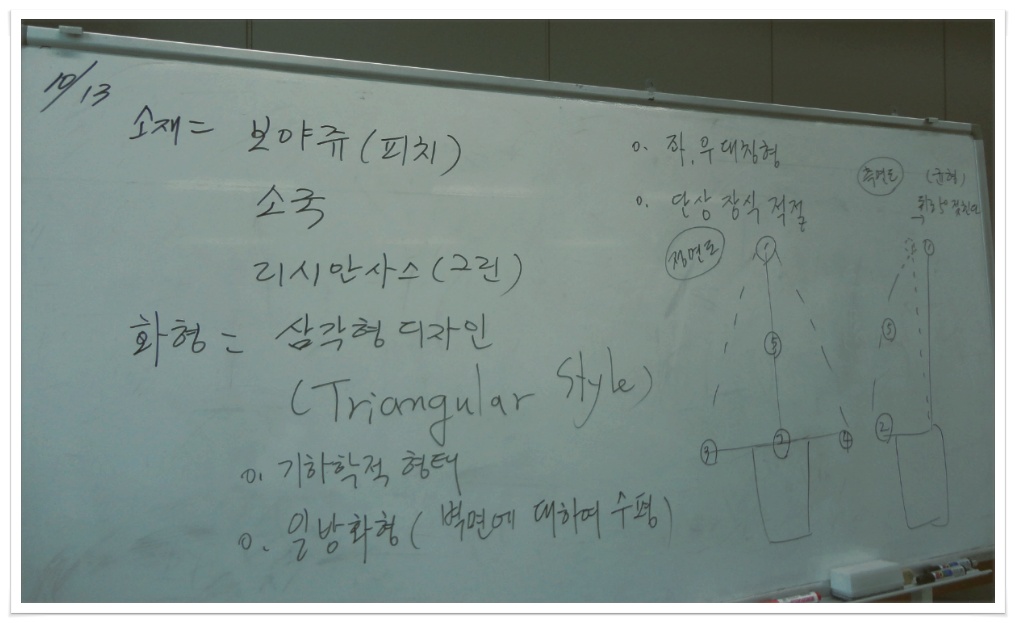 10/13
소재 = 보야쥬 (피치)
소국
리시안사스 (그린)
화형 = 삼각형 디자인
(Triangular Style)
o. 기하학적 형태
o. 일방화형 ( 벽면에 대하여 수평)
o. 좌, 우 대칭형
o. 단상 장식 적절
정면도
1
5
3
2
4
측면도
→
1
5
2